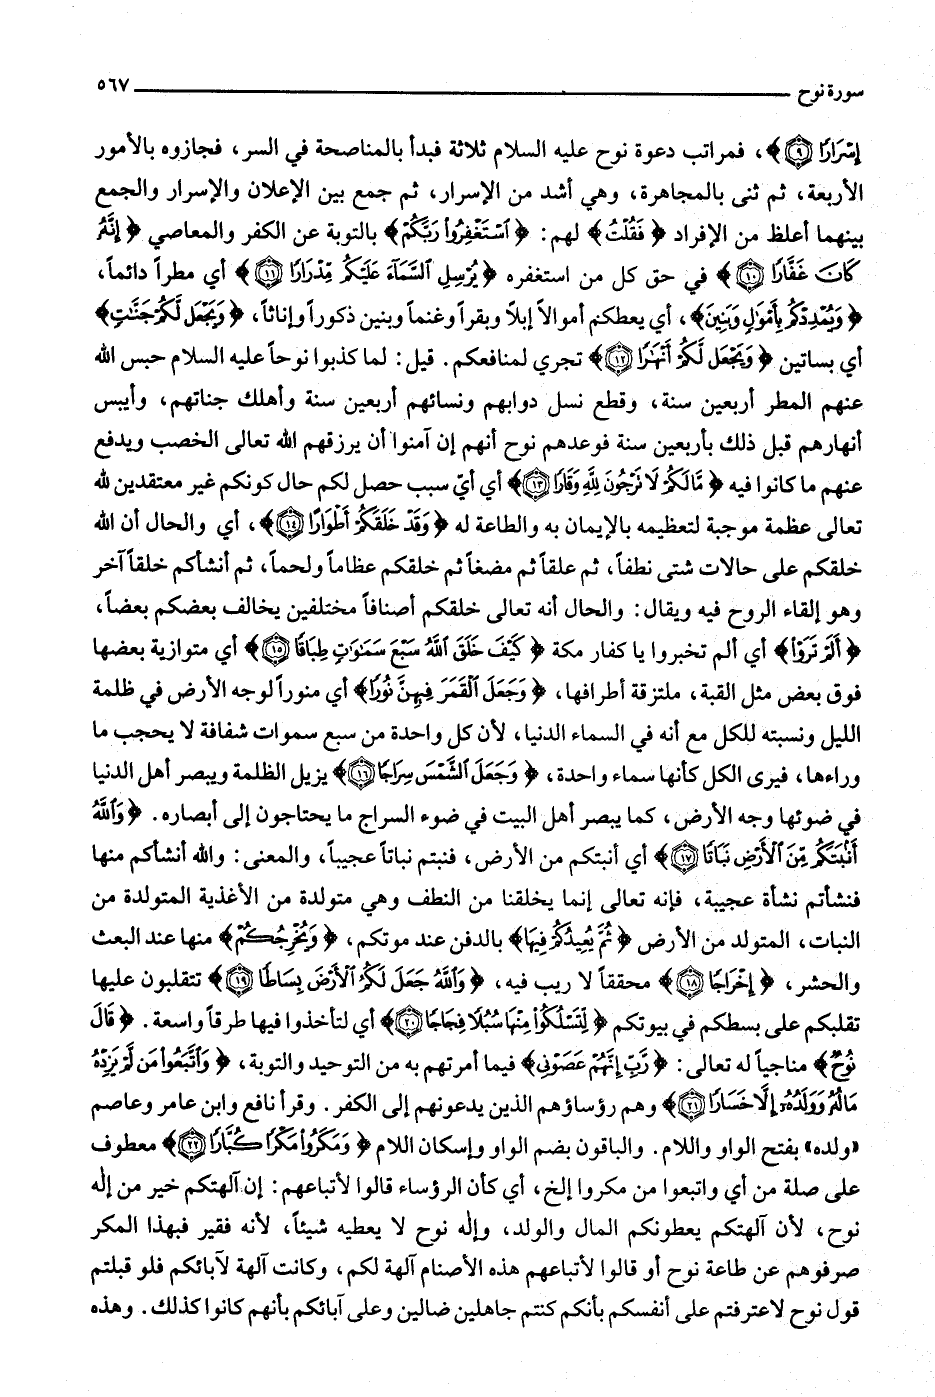 سورة نوح ٥٦٧
إِسْرَارًا ﴿٩﴾﴾، فمراتب دعوة نوح عليه السلام ثلاثة فبدأ بالمناصحة في السر، فجازوه بالأمور
الأربعة، ثم ثنى بالمجاهرة، وهي أشد من الإسرار، ثم جمع بين الإعلان والإسرار والجمع
بينهما أغلظ من الإفراد ﴿فَقُلْتُ﴾ لهم: ﴿ٱسْتَغْفِرُواْ رَبَّكُمْ﴾ بالتوبة عن الكفر والمعاصي ﴿إِنَّهُۥ
كَانَ غَفَّارًا ﴿١٠﴾﴾ في حق كل من استغفره ﴿يُرْسِلِ ٱلسَّمَآءَ عَلَيْكُم مِّدْرَارًا ﴿١١﴾﴾ أي مطراً دائماً،
﴿وَيُمْدِدْكُم بِأَمْوَٰلٍ وَبَنِينَ﴾، أي يعطكم أموالاً إبلاً وبقراً وغنماً وبنين ذكوراً وإناثاً، ﴿وَيَجْعَل لَّكُمْ جَنَّٰتٍ﴾
أي بساتين ﴿وَيَجْعَل لَّكُمْ أَنْهَٰرًا ﴿١٢﴾﴾ تجري لمنافعكم. قيل: لما كذبوا نوحاً عليه السلام حبس الله
عنهم المطر أربعين سنة، وقطع نسل دوابهم ونسائهم أربعين سنة وأهلك جناتهم، وأيبس
أنهارهم قبل ذلك بأربعين سنة فوعدهم نوح أنهم إن آمنوا أن يرزقهم الله تعالى الخصب ويدفع
عنهم ما كانوا فيه ﴿مَّا لَكُمْ لَا تَرْجُونَ لِلَّهِ وَقَارًا ﴿١٣﴾﴾ أي أيّ سبب حصل لكم حال كونكم غير معتقدين لله
تعالى عظمة موجبة لتعظيمه بالإيمان به والطاعة له ﴿وَقَدْ خَلَقَكُمْ أَطْوَارًا ﴿١٤﴾﴾، أي والحال أن الله
خلقكم على حالات شتى نطفاً، ثم علقاً ثم مضغاً ثم خلقكم عظاماً ولحماً، ثم أنشأكم خلقاً آخر
وهو إلقاء الروح فيه ويقال: والحال أنه تعالى خلقكم أصنافاً مختلفين يخالف بعضكم بعضاً،
﴿أَلَمْ تَرَوْاْ﴾ أي ألم تخبروا يا كفار مكة ﴿كَيْفَ خَلَقَ ٱللَّهُ سَبْعَ سَمَٰوَٰتٍ طِبَاقًا ﴿١٥﴾﴾ أي متوازية بعضها
فوق بعض مثل القبة، ملتزقة أطرافها، ﴿وَجَعَلَ ٱلْقَمَرَ فِيهِنَّ نُورًا﴾ أي منوراً لوجه الأرض في ظلمة
الليل ونسبته للكل مع أنه في السماء الدنيا، لأن كل واحدة من سبع سموات شفافة لا يحجب ما
وراءها، فيرى الكل كأنها سماء واحدة، ﴿وَجَعَلَ ٱلشَّمْسَ سِرَاجًا ﴿١٦﴾﴾ يزيل الظلمة ويبصر أهل الدنيا
في ضوئها وجه الأرض، كما يبصر أهل البيت في ضوء السراج ما يحتاجون إلى أبصاره. ﴿وَٱللَّهُ
أَنۢبَتَكُم مِّنَ ٱلْأَرْضِ نَبَاتًا ﴿١٧﴾﴾ أي أنبتكم من الأرض، فنبتم نباتاً عجيباً، والمعنى: والله أنشأكم منها
فنشأتم نشأة عجيبة، فإنه تعالى إنما يخلقنا من النطف وهي متولدة من الأغذية المتولدة من
النبات، المتولد من الأرض ﴿ثُمَّ يُعِيدُكُمْ فِيهَا﴾ بالدفن عند موتكم، ﴿وَيُخْرِجُكُمْ﴾ منها عند البعث
والحشر، ﴿إِخْرَاجًا ﴿١٨﴾﴾ محققاً لا ريب فيه، ﴿وَٱللَّهُ جَعَلَ لَكُمُ ٱلْأَرْضَ بِسَاطًا ﴿١٩﴾﴾ تتقلبون عليها
تقلبكم على بسطكم في بيوتكم ﴿لِّتَسْلُكُواْ مِنْهَا سُبُلًا فِجَاجًا ﴿٢٠﴾﴾ أي لتأخذوا فيها طرقاً واسعة. ﴿قَالَ
نُوحٌ﴾ مناجياً له تعالى: ﴿رَّبِّ إِنَّهُمْ عَصَوْنِي﴾ فيما أمرتهم به من التوحيد والتوبة، ﴿وَٱتَّبَعُواْ مَن لَّمْ يَزِدْهُ
مَالُهُۥ وَوَلَدُهُۥٓ إِلَّا خَسَارًا ﴿٢١﴾﴾ وهم رؤساؤهم الذين يدعونهم إلى الكفر. وقرأ نافع وابن عامر وعاصم
«ولده» بفتح الواو واللام. والباقون بضم الواو وإسكان اللام ﴿وَمَكَرُواْ مَكْرًا كُبَّارًا ﴿٢٢﴾﴾ معطوف
على صلة من أي واتبعوا من مكروا إلخ، أي كأن الرؤساء قالوا لأتباعهم: إن آلهتكم خير من إلٰه
نوح، لأن آلهتكم يعطونكم المال والولد، وإلٰه نوح لا يعطيه شيئاً، لأنه فقير فبهذا المكر
صرفوهم عن طاعة نوح أو قالوا لأتباعهم هذه الأصنام آلهة لكم، وكانت آلهة لآبائكم فلو قبلتم
قول نوح لاعترفتم على أنفسكم بأنكم كنتم جاهلين ضالين وعلى آبائكم بأنهم كانوا كذلك. وهذه